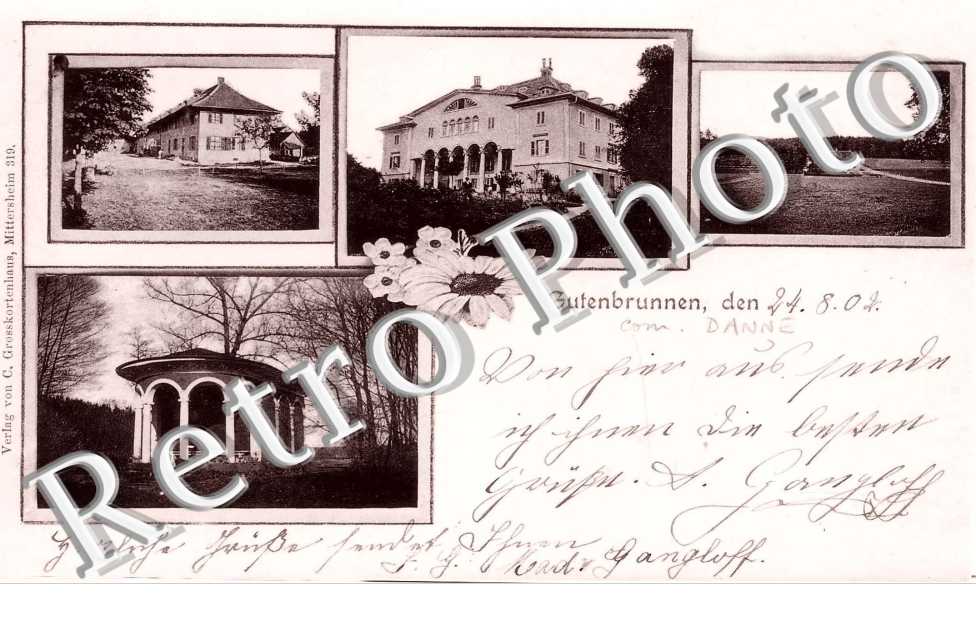 Verlag von C. Grosskortenhaus, Mittersheim 319.
Retro Photo
Gutenbrunnen, den 24. 8. 02.
com. DANNE
Von hier aus sende
ich ihnen die besten
Grüße. Gangloff
Herzliche Grüße sendet Ihnen
Gangloff.